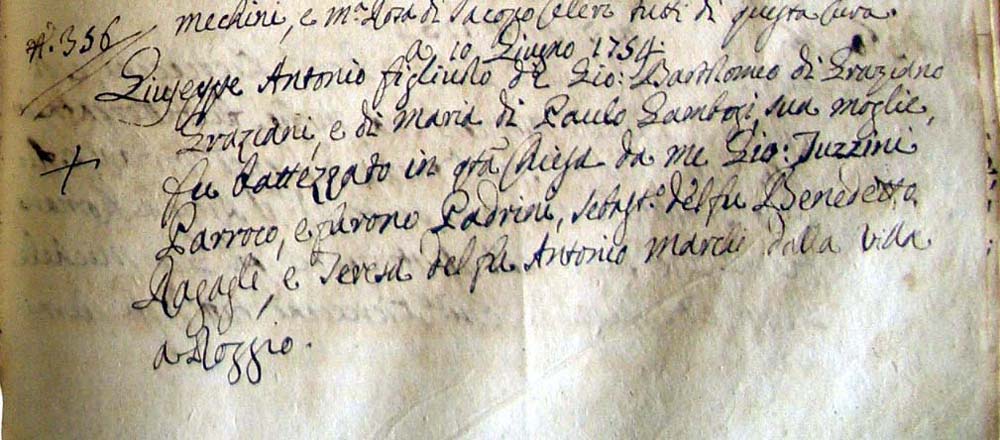 mechini, e M.ª Rosa di Jacopo Celeri tutti di questa Cura.
N. 356
a 10 Giugno 1754
Giuseppe Antonio figliuolo di Gio: Bartholomeo di Graziano
Graziani, e di Maria di Paulo Gambogi, sua moglie,
fu battezzato in q.ta Chiesa da me Gio: Tuzzini
Parroco, e furono Padrini, Sebast.º del fu Benedetto
Ragagli, e Teresa del fu Antonio Marchi dalla Villa
a Roggio.